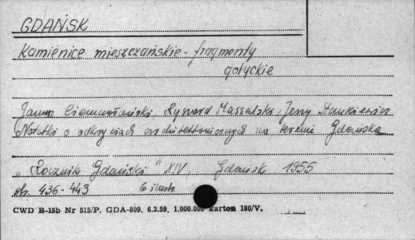 GDAŃSK
Kamienice mieszczańskie - fragmenty
gotyckie
Janusz Ciemnołoński, Ryszard Massalski, Jerzy Stankiewicz
Notatki o odkryciach architektonicznych na terenie Gdańska
"Rocznik Gdański" XIV, Gdańsk 1955
str. 436-443 6 ilustr.
CWD B-15b Nr 515/P. GDA-809. 6.3.59. 1.000.000 karton 180/V.